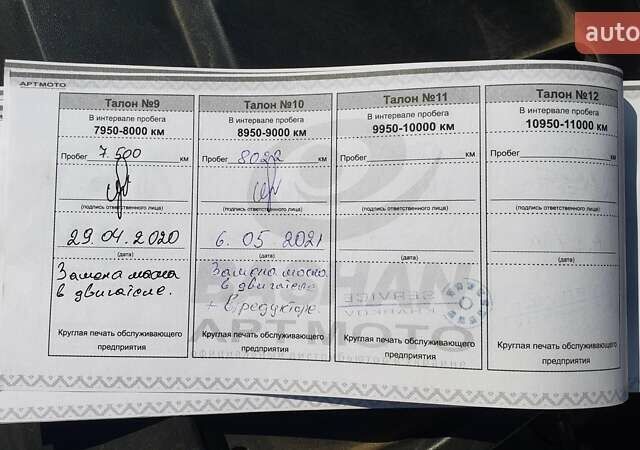 auto
АРТМОТО
Талон №9
В интервале пробега
7950-8000 км
Пробег 7.500 км
(подпись ответственного лица)
29.04.2020
(дата)
Замена масла
в двигателе.
Круглая печать обслуживающего
предприятия
Талон №10
В интервале пробега
8950-9000 км
Пробег 8022 км
(подпись ответственного лица)
6.05 2021
(дата)
Замена масла
в двигателе
+ в редукторе.
Круглая печать обслуживающего
предприятия
Талон №11
В интервале пробега
9950-10000 км
Пробег км
(подпись ответственного лица)
(дата)
SERVICE
KHARKOV
Круглая печать обслуживающего
предприятия
Талон №12
В интервале пробега
10950-11000 км
Пробег км
(подпись ответственного лица)
(дата)
Круглая печать обслуживающего
предприятия
АРТМОТО